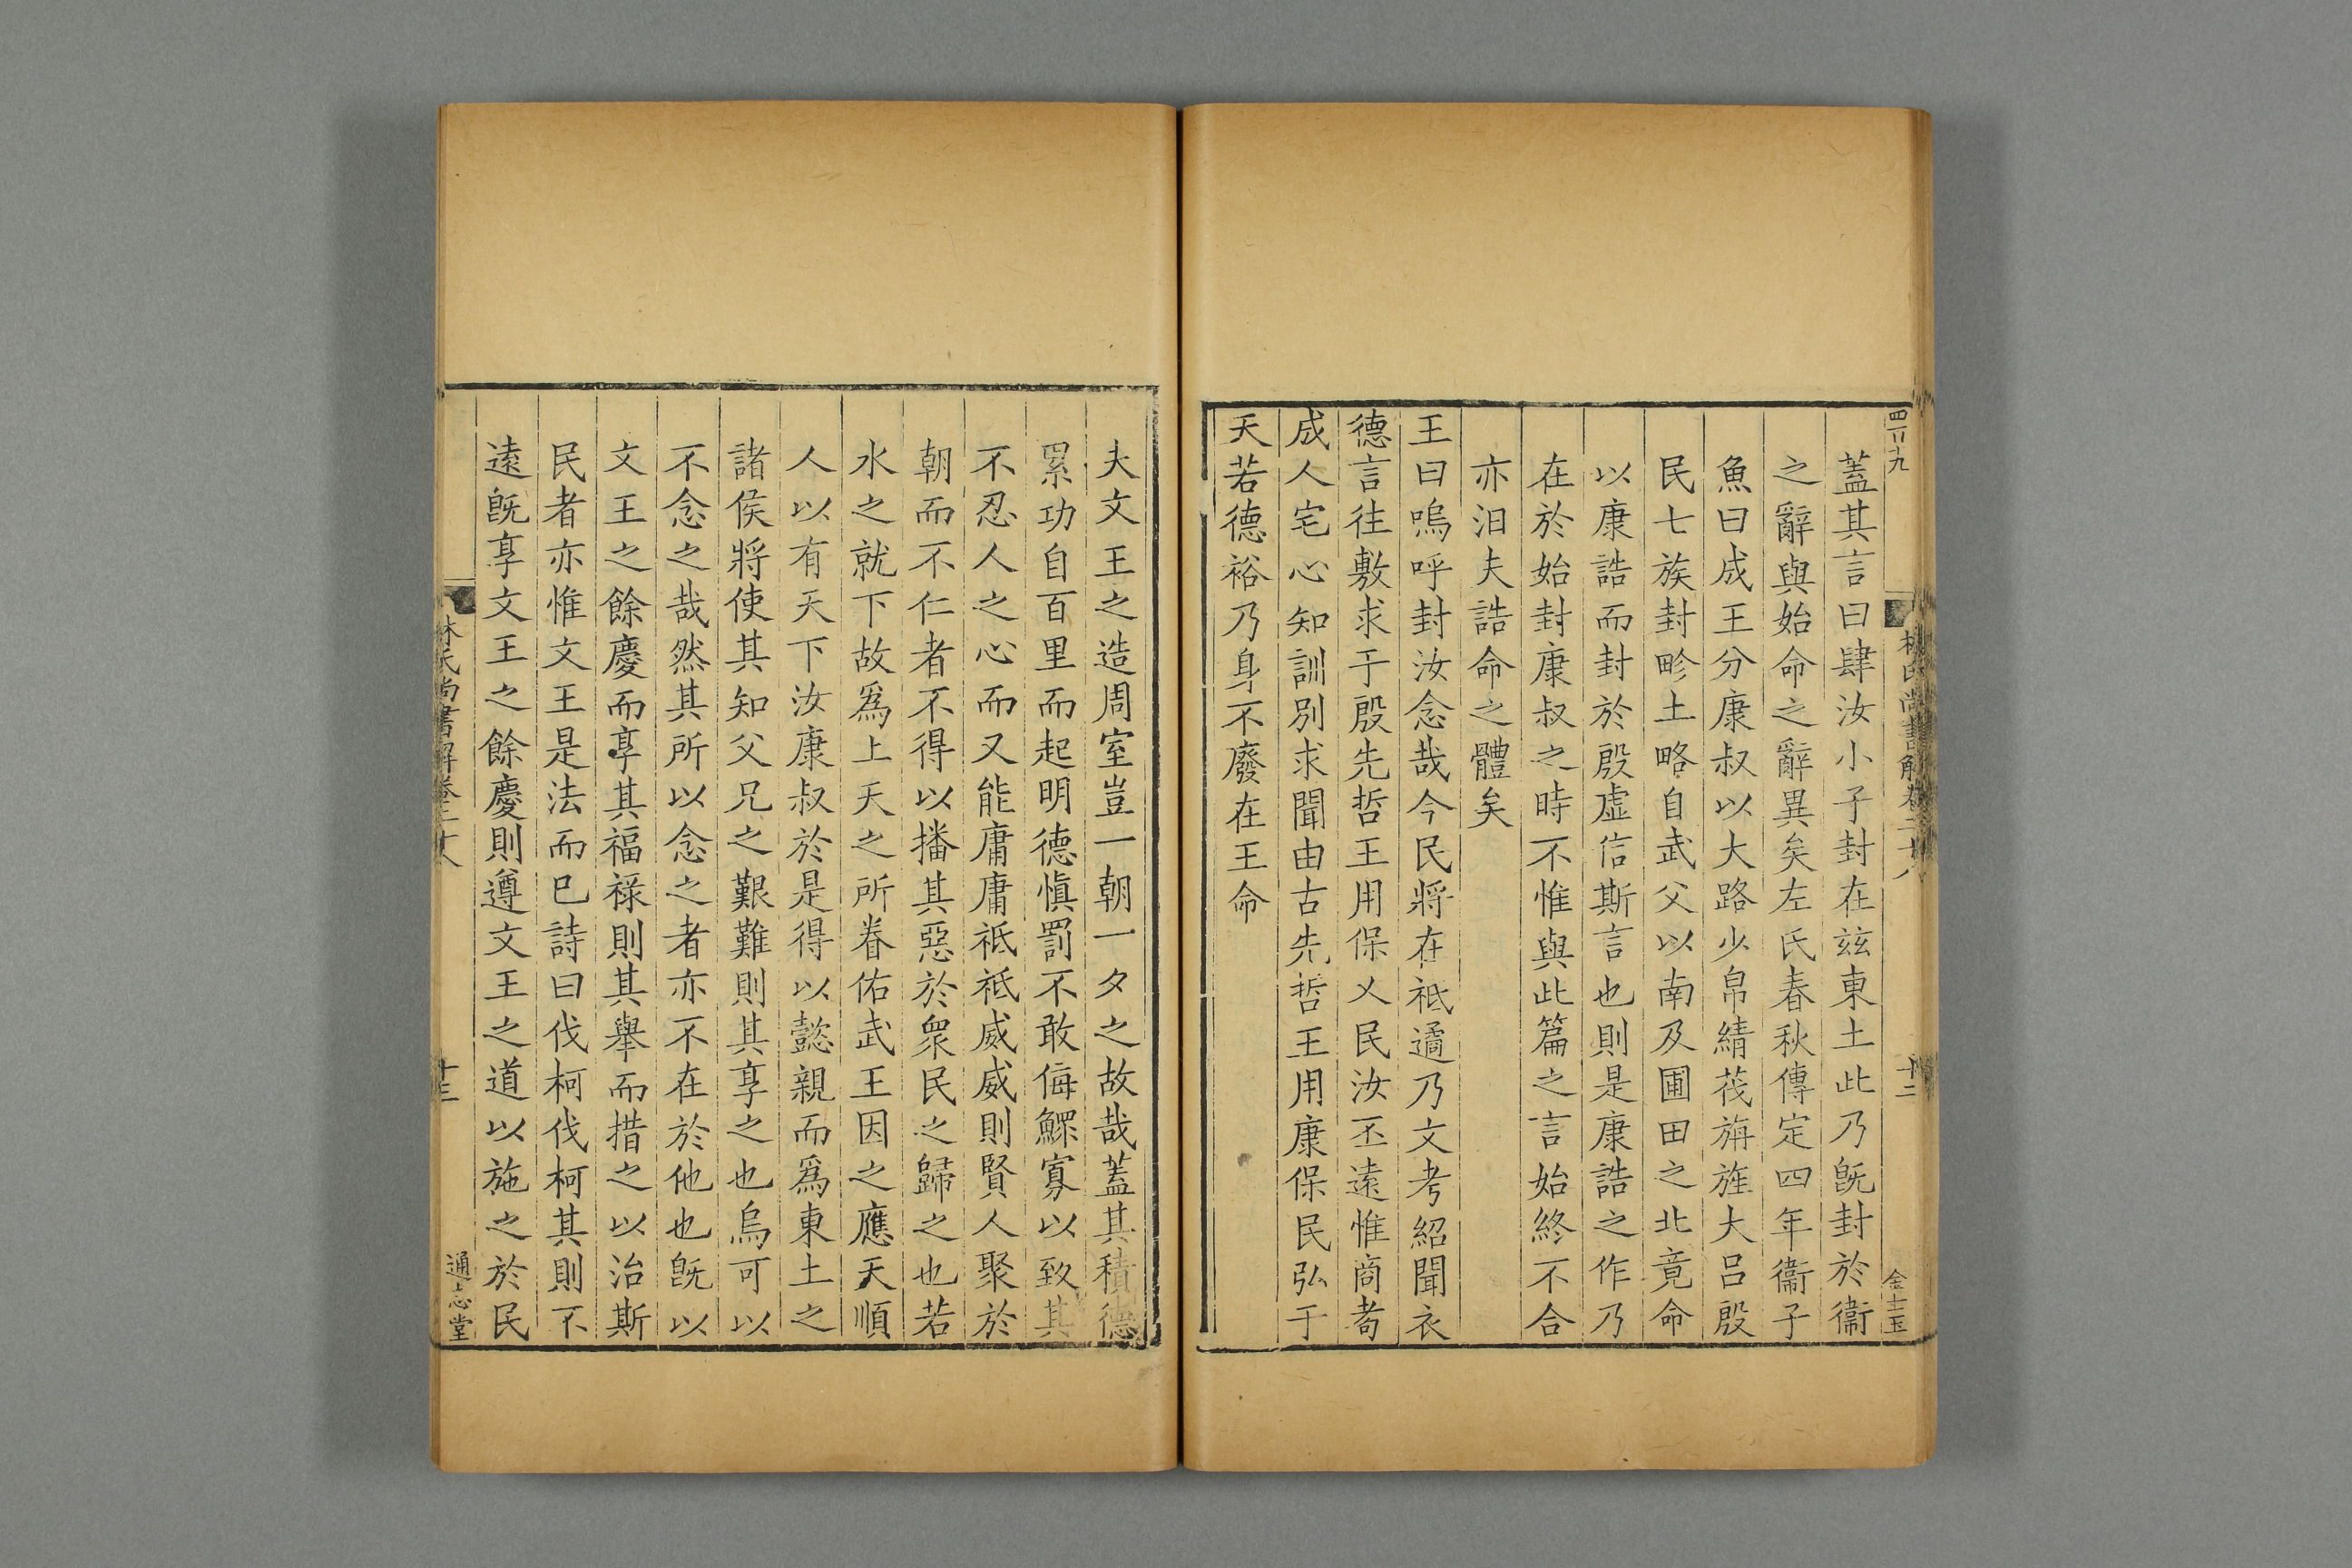 四百十九
林氏尚書解卷二十八
十二
金士玉
蓋其言曰肆汝小子封在茲東土此乃旣封於衞
之辭與始命之辭異矣左氏春秋傳定四年衞子
魚曰成王分康叔以大路少帛綪茷旃旌大呂殷
民七族封畛土略自武父以南及圃田之北竟命
以康誥而封於殷虛信斯言也則是康誥之作乃
在於始封康叔之時不惟與此篇之言始終不合
亦汨夫誥命之體矣
王曰嗚呼封汝念哉今民將在祗遹乃文考紹聞衣
德言往敷求于殷先哲王用保乂民汝丕遠惟商耇
成人宅心知訓別求聞由古先哲王用康保民弘于
天若德裕乃身不廢在王命
夫文王之造周室豈一朝一夕之故哉蓋其積德
累功自百里而起明德愼罰不敢侮鰥寡以致其
不忍人之心而又能庸庸祗祗威威則賢人聚於
朝而不仁者不得以播其惡於衆民之歸之也若
水之就下故爲上天之所眷佑武王因之應天順
人以有天下汝康叔於是得以懿親而爲東土之
諸侯將使其知父兄之艱難則其享之也烏可以
不念之哉然其所以念之者亦不在於他也旣以
文王之餘慶而享其福祿則其舉而措之以治斯
民者亦惟文王是法而已詩曰伐柯伐柯其則不
遠旣享文王之餘慶則遵文王之道以施之於民
林氏尚書解卷二十八
十三
通志堂